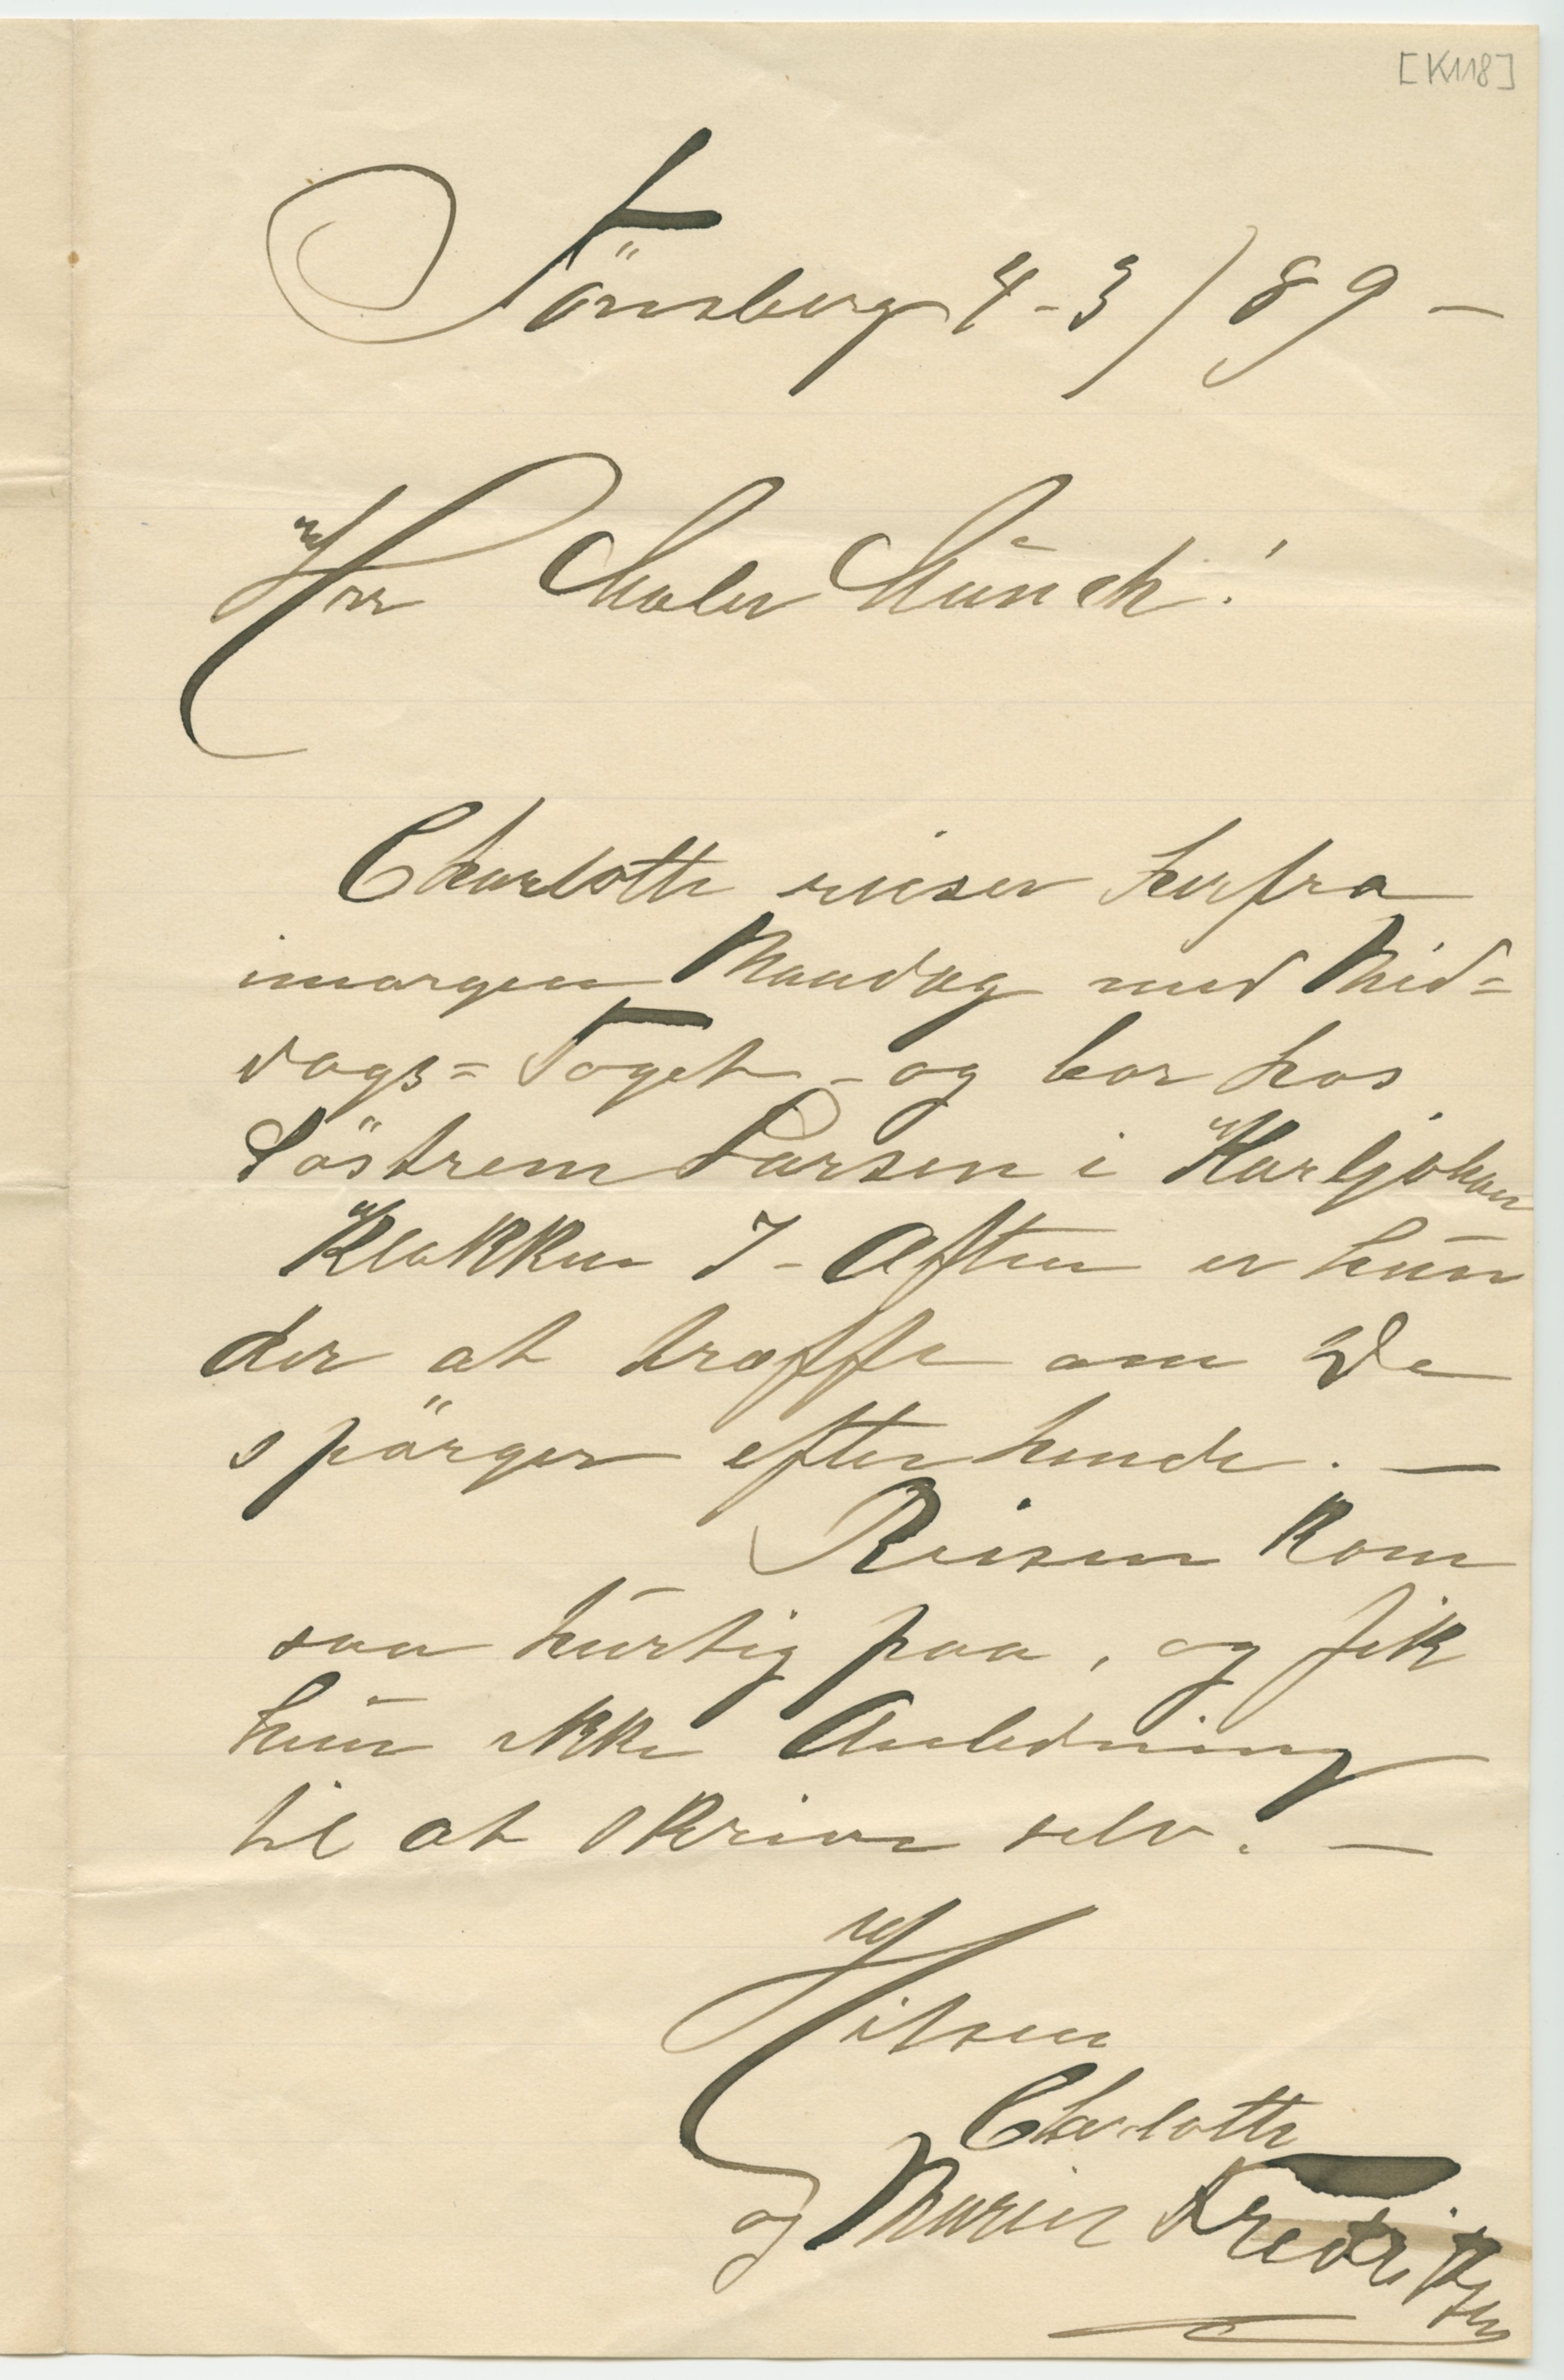 [K118]
Tönsberg 4-3/89 —
Hrr Maler Munch!
Charlotte reiser herfra
imorgen Mandag med Mid=
dags=Toget - og bor hos
Söstrem Larsen i Karljohan
Klokken 7 - Aften er hun
der at træffe om De
spörger efter hende. —
Reisen kom
saa hurtig paa, og fik
hun ikke Anledning
til at skrive selv. —
Hilsen
Charlotte
og Marie Fredriksen